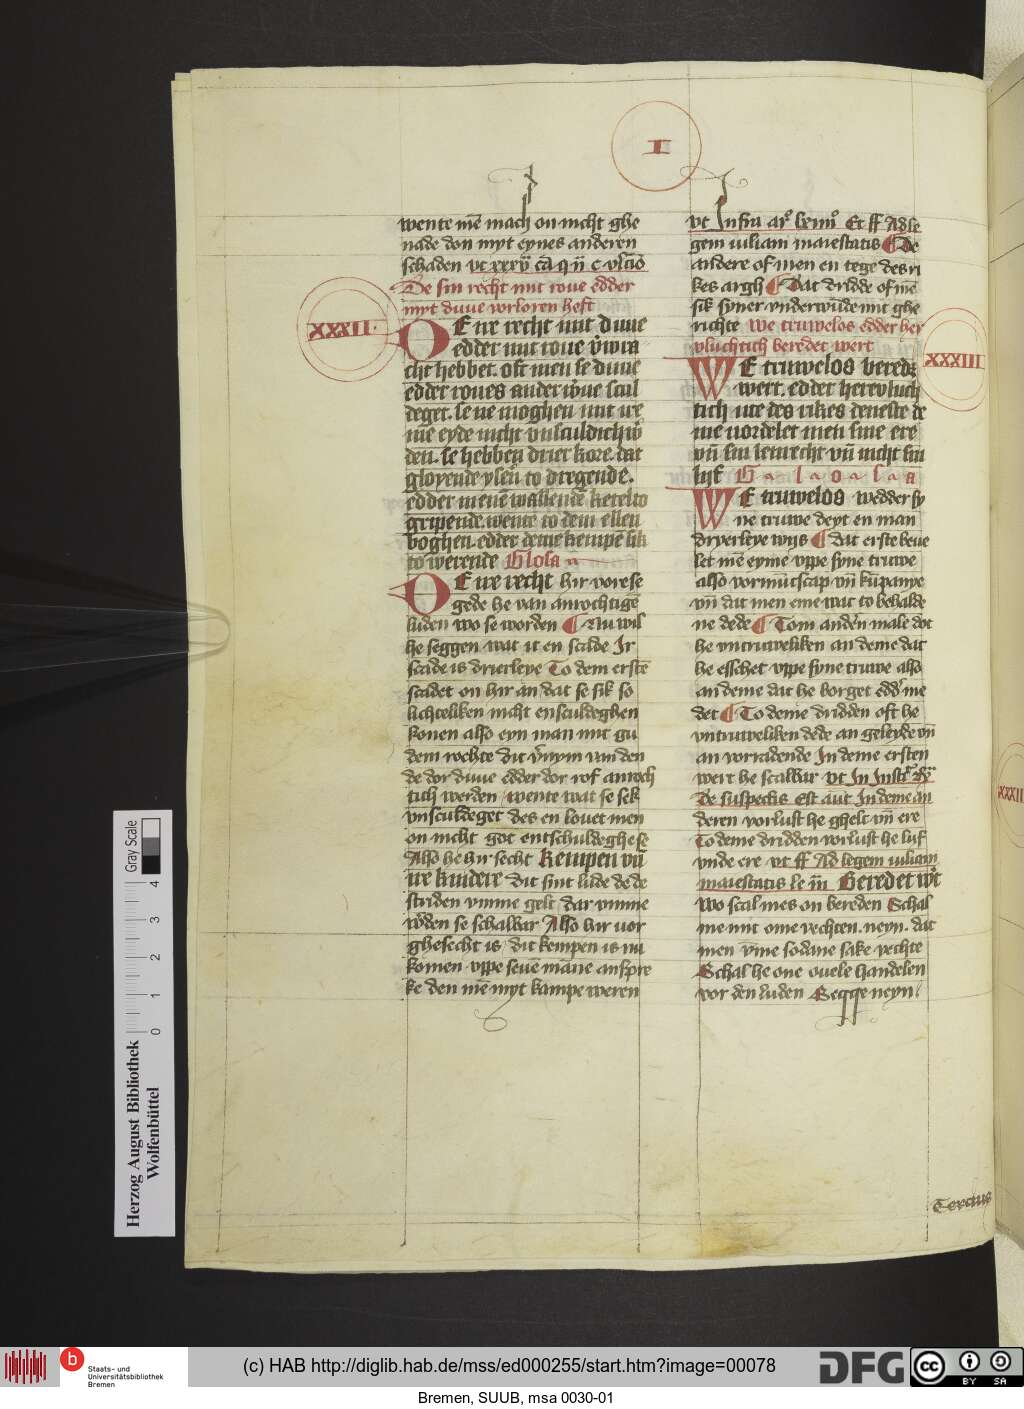 I
wente mē mach on nicht ghe
nade don myt eynes anderen
schaden vt xxxv̄ cā q n̄ c vlcio
De sin recht mit roue edder
myt duue vorloren heft
XXXII
DE ire recht mit duue
edder mit roue v̄wra
cht hebbet. oft men se duue
edder roues ander w̄ue scul
deget. se ne moghen mit ire
me eyde nicht vnsculdich w̄
den. se hebben drier kore. dat
gloyende ysen to dregende.
edder in enē wallende ketel to
gripende wente to dem ellen
boghen. edder deme kempe sik
to werende Glosa
DE ire recht hir vore se
gede he van anrochtigē
luden wo se worden Nu wil
he seggen wat it en scade Ir
scade is drierleye To dem erstē
scadet on hir an dat se sik so
lichteliken nicht ensculdeghen
konen also eyn man mit gu
dem rochte dit v̄nym van den
de dor duue edder dor rof anroch
tich werden wente wat se sek
vnsculdeget des en louet men
on nicht got entschuldeghe se
Also he hir secht kempen vn̄
ire kindere dit sint lude de de
striden vmme gelt dar vmme
w̄den se schalbar Also hir vor
ghesecht is dit kempen is nu
komen vppe seuē māne anspre
ke den mē myt kampe weren
vt Infra ar̊ Et ff Ad le
gem iuliam maiestatis De
andere of men en tege des ri
kes argh Dat drūdde of mē
sik syner vnderwūde mit ghe
richte We truwelos edder her
vluchtich beredet wert
XXXIII
WE truwelos beredz
wert. edder hervluch
tich ute des rikes deneste de
me vordelet men sine ere
vn̄ sin lenrecht vn̄ nicht sin
lijf G l o s a
WE truwelos wedder sy
ne truwe deyt en man
drverleye wijs dat erste beue
let mē eyme vppe syne truwe
also vormūtscap vn̄ kūpanye
vn̄ dat men eme wat to behalde
ne dede Tom andern male dot
he vntruweliken an deme dat
he esschet vppe syne truwe also
an deme dat he borget edd̄ me
det To deme dridden oft he
vntruweliken dede an geleyde vn̄
an vorradende In deme ersten
wert he scalbar vt In Instꝛ̄ de
De suspectis Est aut In deme an
deren vorlust he ghelt vn̄ ere
To deme dridden vorlust he luf
vnde ere vt ff Ad legem iuliam
maiestatis le iii Beredet w̄t
Wo scal mes on bereden Schal
me mit ome vechten. neyn. dat
men v̄me sodane sake vechte
Schal he one ouele handelen
vor den luden Segge neyn.
XXXII
Tercius
Gray Scale
4
3
2
1
0
Herzog August Bibliothek
Wolfenbüttel
b
Staats- und
Universitätsbibliothek
Bremen
(c) HAB http://diglib.hab.de/mss/ed000255/start.htm?image=00078
DFG
cc
BY SA
Bremen, SUUB, msa 0030-01